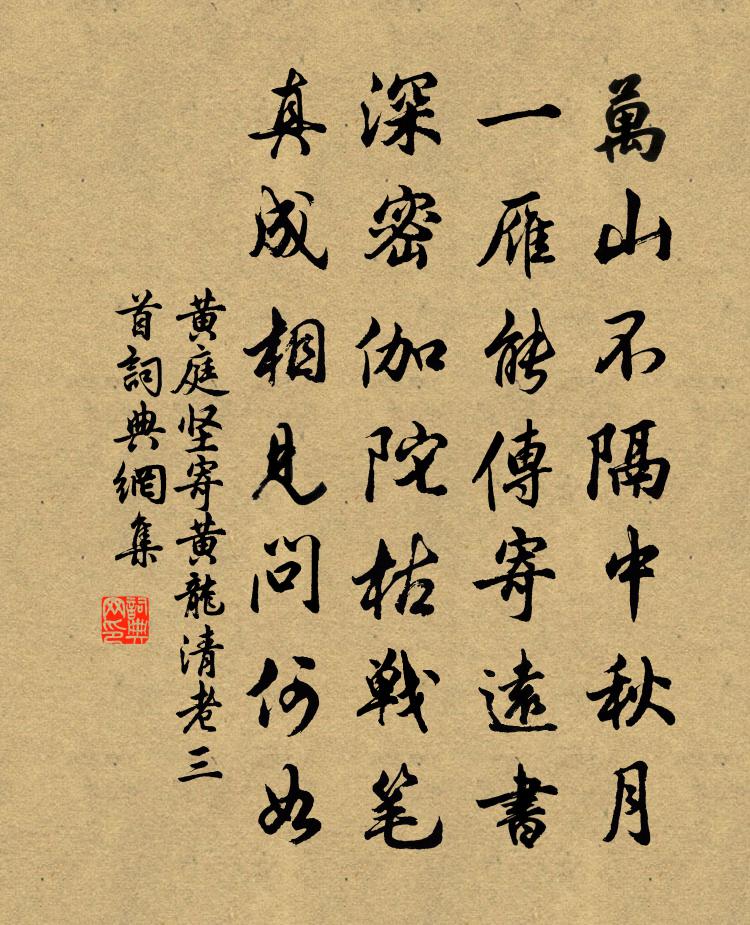 萬山不隔中秋月
一雁能傳寄遠書
深密伽陀枯戰笔
真成相見問何如
黄庭坚寄黄龍清老三
首詞典網集
詞典
网印